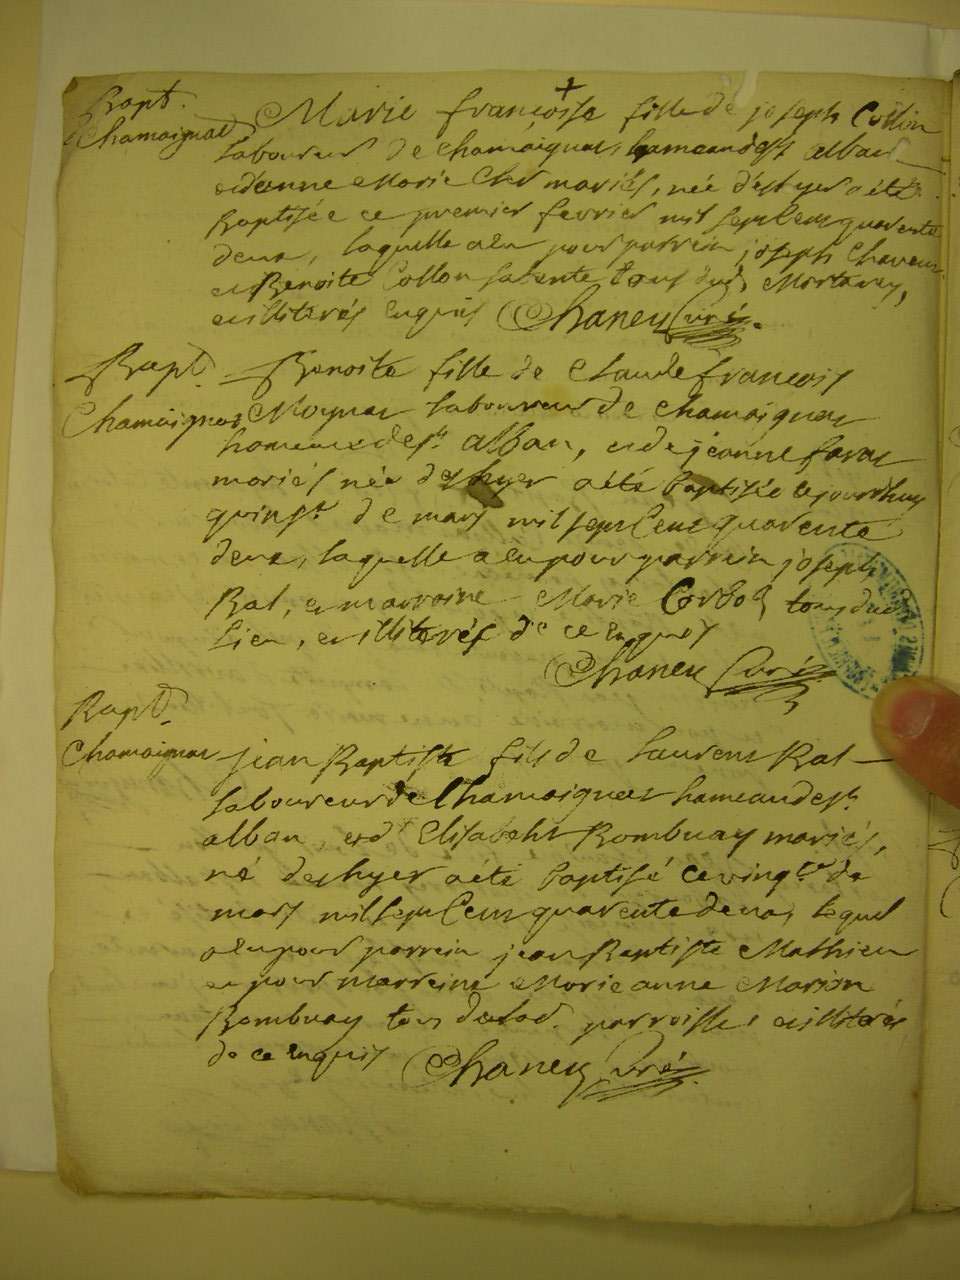 Bapt.
Chamoignat
Marie françoise fille de joseph Collon
laboureur de chamoignat, hameau de st alban
et de anne Marie Cler mariés, née d'est yer a été
Baptisée ce premier fevrier mil sept cent quarente
deux, laquelle a eu pour parrein joseph Chaveur
et Benoite Collon sa tente tous dud Mortarey,
et illiterés enquis Chaney Curé.
Bapt.
Chamoignat
Benoite fille de Claude françois
Moynat laboureur de Chamoignat
hameau de st. alban, et de jeanne favat
mariés née des hyer a été baptisée ce jourdhuy
quinzè. de mars mil sept cent quarente
deux, laquelle a eu pour parrein joseph
Rat, et marraine Marie tous dud
lieu, et illiterés de ce enquis
Chaney Curé
Bapt.
Chamoignat
jean Baptiste fils de laurent Rat
laboureur de Chamoignat hameau de st.
alban, et d' Elisabeht Bombuay mariés,
né des hyer a été baptisé ce vingt. de
mars mil sept cent quarente deux, lequel
a eu pour parrein jean Baptiste Mathieu
et pour marreine Marie anne Marion
Bombuay tous de lad. parroisse, et illiterés
de ce enquis Chaney Curé